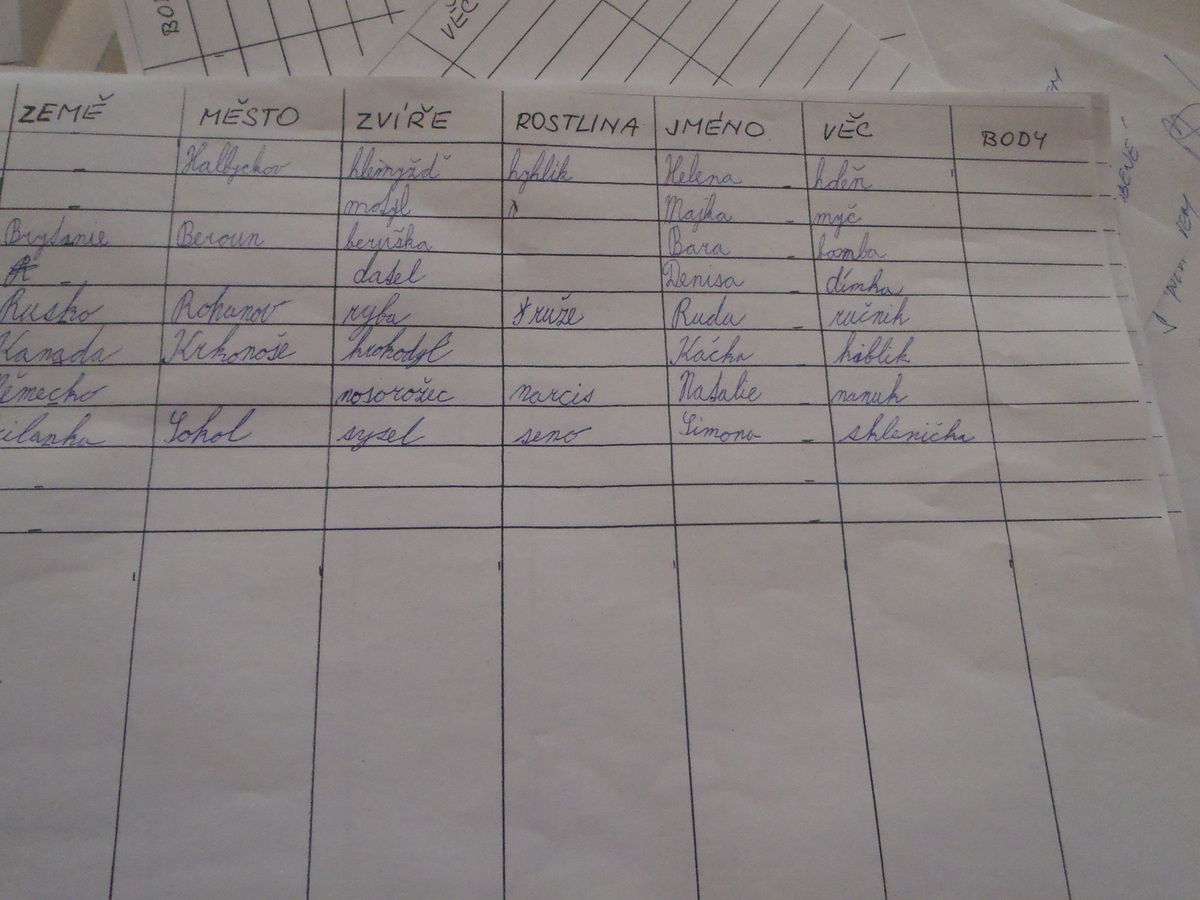 BOD
VĚC
ZEMĚ MĚSTO ZVÍŘE ROSTLINA JMÉNO VĚC BODY
- Halbychov hlemýžď hyhlík Helena - hděň
- motýl Majka - myč
Brytanie Beroun beruška Bara bomba
- datel Denisa dímka
Rusko Rohanov ryba růže Ruda - ručník
Kanada Krkonoše krokodýl Káčka káblík
Německo nosorožec narcis Natalie - nanuk
Sokol sysel seno Simona - sklenička